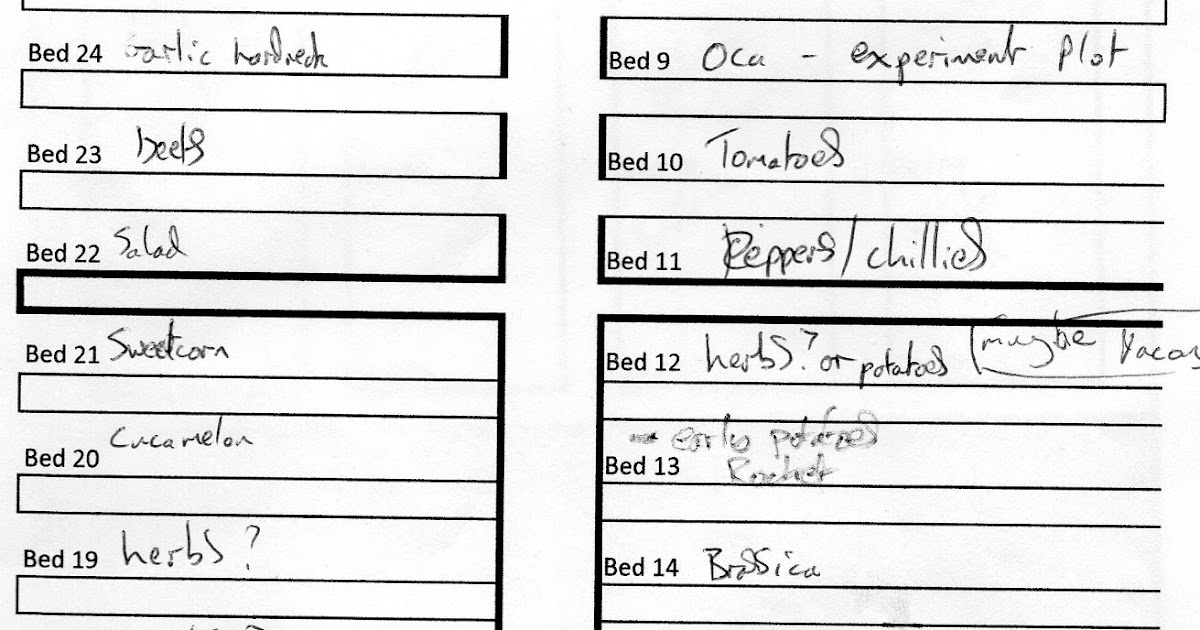 Bed 24 Garlic hardneck
Bed 23 beets
Bed 22 Salad
Bed 21 Sweetcorn
Bed 20 Cucamelon
Bed 19 herbs?
Bed 9 Oca - experiment Plot
Bed 10 Tomatoes
Bed 11 Peppers/chillies
Bed 12 herbs? or potatoes (maybe Yacon
- earlies potatoes
Bed 13 Rocket
Bed 14 Brassica